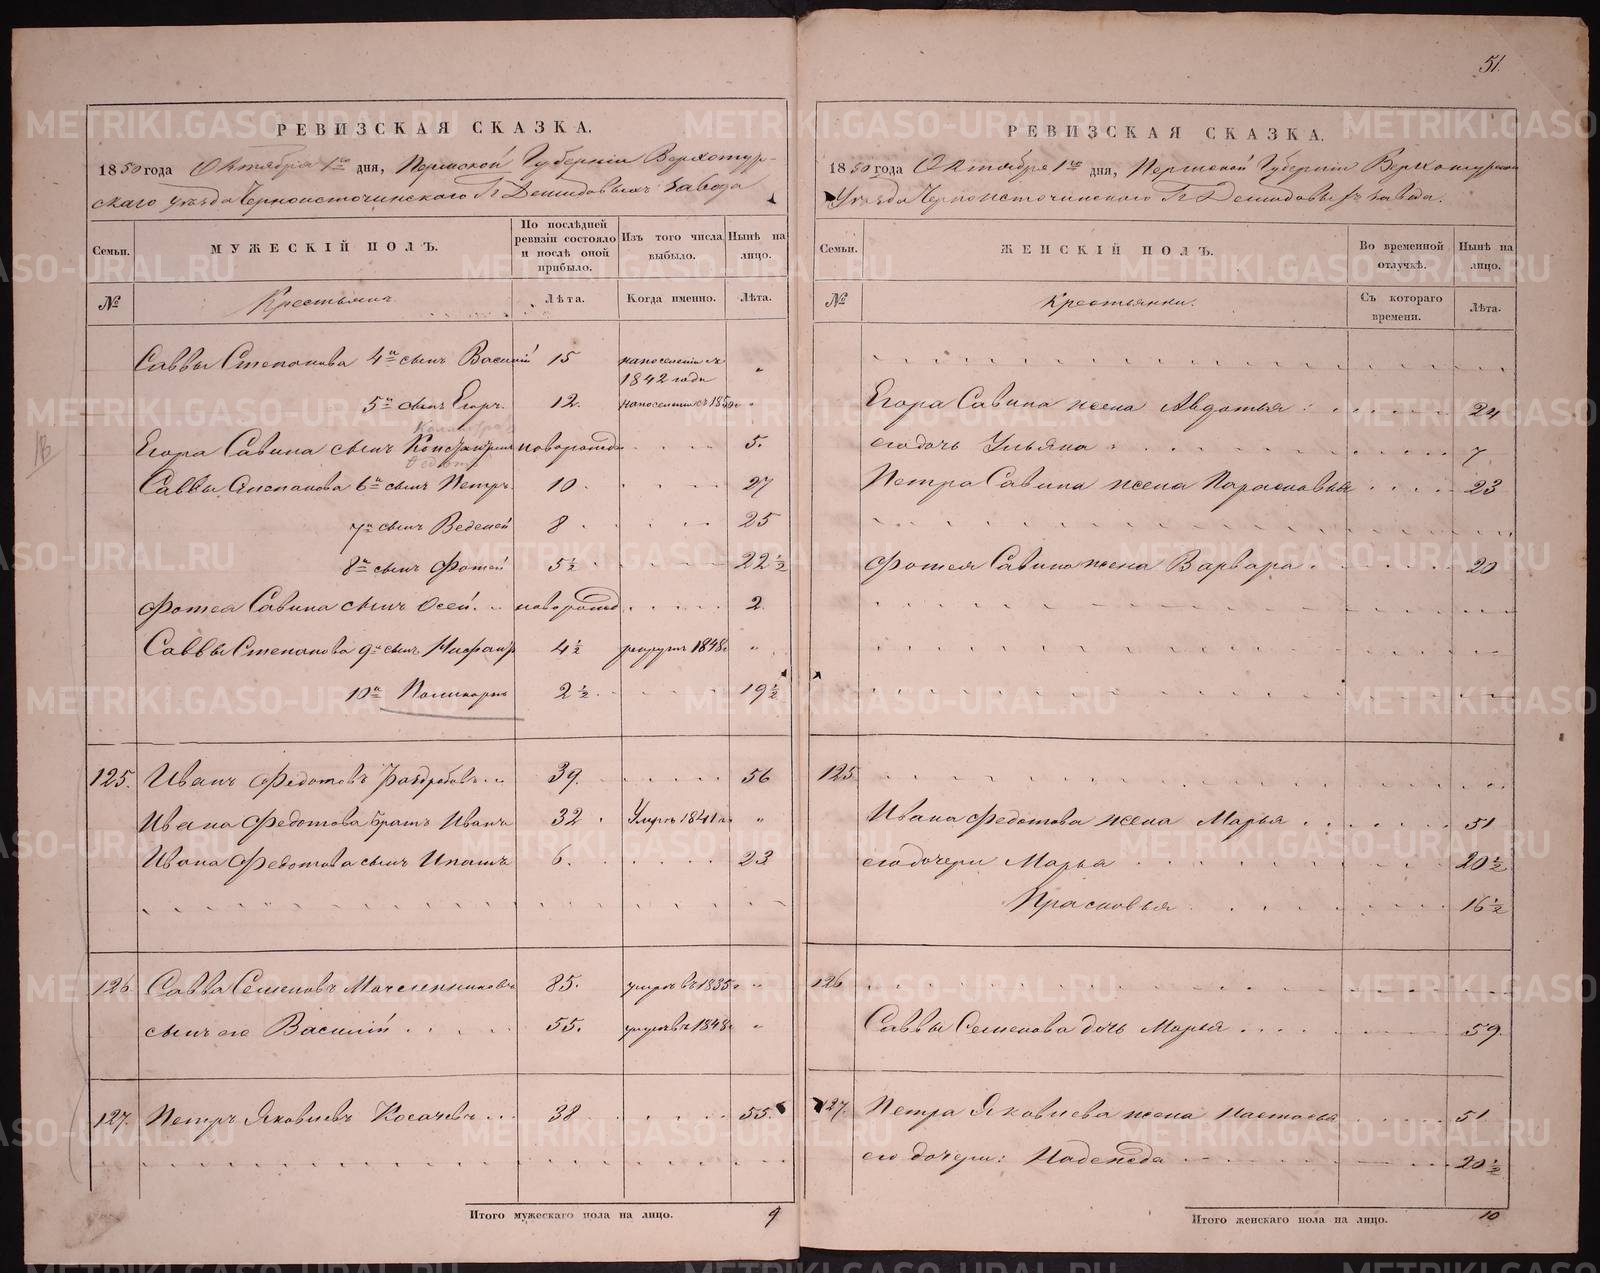 51.
РЕВИЗСКАЯ СКАЗКА.
1850 года Октября 1го дня, Пермской Губерніи Верхотур-
скаго уѣзда Черноисточинскаго Гг Демидовыхъ завода
Семьи.
МУЖЕСКІЙ ПОЛЪ.
По послѣдней ревизіи состояло и послѣ оной прибыло.
Изъ того числа выбыло.
Нынѣ на лицо.
№
Крестьянъ
Лѣта.
Когда именно.
Лѣта.
Саввы Степанова 4й сынъ Василій 15 1842 года "
5й сынъ Егоръ 12. 1850 "
Егора Савина сынъ Константинъ новорожд 5.
Саввы Степанова 6й сынъ Петръ 10 27
7й сынъ Веденей 8 25
8й сынъ Фотей 5½ 22½
Фотея Савина сынъ Осей новорожд 2
Саввы Степанова 9й сынъ 4½ рекрут 1848 "
10й Поликарпъ 2½ 19½
125. Иванъ Федотовъ 39. 56
Ивана Федотова братъ Иванъ 32 Умръ 1841 "
Ивана Федотова сынъ Игнатъ 6. 23
126 Савва Семеновъ Масленниковъ 85. умръ въ 1835 "
сынъ его Василій 55. умръ въ 1848 "
127. Петръ Яковлевъ Косачевъ 38 55
Итого мужескаго пола на лицо. 9
РЕВИЗСКАЯ СКАЗКА.
1850 года Октября 1го дня, Пермской Губерніи Верхотурскаго
Уѣзда Черноисточинскаго Гг Демидовыхъ завода.
Семьи.
ЖЕНСКІЙ ПОЛЪ.
Во временной отлучкѣ.
Нынѣ на лицо.
№
Крестьянки.
Съ котораго времени.
Лѣта.
Егора Савина жена Авдотья 24
его дочь Ульяна 7
Петра Савина жена Парасковья 23
Фотея Савина жена Варвара 20
125
Ивана Федотова жена Марья 51
его дочери Марья 20½
Прасковья 16½
126
Саввы Семенова дочь Марья 59
127. Петра Яковлева жена Настасья 51
его дочери: Надежда 20½
Итого женскаго пола на лицо. 10
METRIKI.GASO-URAL.RU